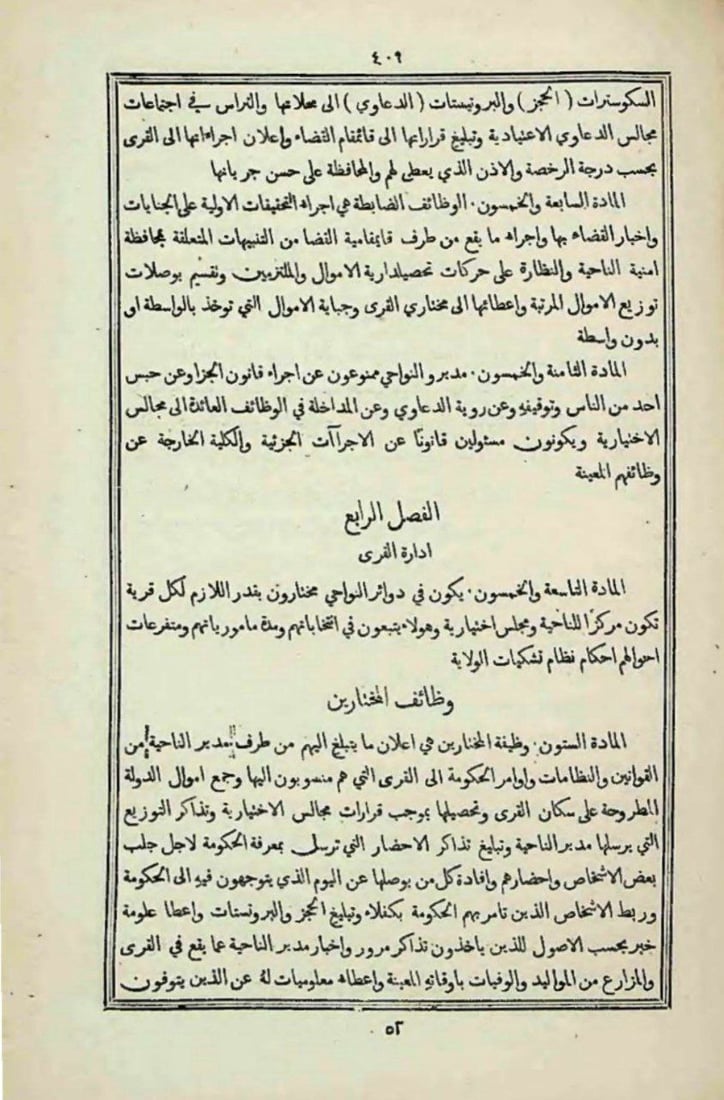 ٤٠٩
السكوسترات ( الحجز ) والبروتيستات ( الدعاوي ) الى محلاعها والتراس في اجتماعات
مجالس الدعاوي الاعتيادية وتبليغ قراراتها الى قائمقام القضاء واعلان اجراءاتها الى القرى
بحسب درجة الرخصة والاذن الذي يعطى لهم والمحافظة على حسن جريانها
المادة السابعة والخمسون · الوظائف الضابطة هي اجراء التحقيقات الاولية على الجنايات
واخبار القضاء بها واجراء ما يقع من طرف قايمقامية القضا من التنبيهات المتعلقة بمحافظة
امنية الناحية والنظارة على حركات تحصيلدارية الاموال والملتزمين وتقسيم بوصلات
توزيع الاموال المرتبة واعطائها الى مختاري القرى وجباية الاموال التي توخذ بالواسطة او
بدون واسطة
المادة الثامنة والخمسون · مديرو النواحي ممنوعون عن اجراء قانون الجزا وعن حبس
احد من الناس وتوقيفه وعن روية الدعاوي وعن المداخلة في الوظائف العائدة الى مجالس
الاختيارية ويكونون مسئولين قانونًا عن الاجراآت الجزئية والكلية الخارجة عن
وظائفهم المعينة
الفصل الرابع
ادارة القرى
المادة التاسعة والخمسون · يكون في دوائر النواحي مختارون بقدر اللازم لكل قرية
تكون مركزًا للناحية ومجلس اختيارية وهولاء يتبعون في انتخاباتهم ومدة مامورياتهم ومتفرعات
احوالهم احكام نظام تشكيلات الولاية
وظائف المختارين
المادة الستون · وظيفة المختارين هي اعلان ما يتبلغ اليهم من طرف مدير الناحية من
القوانين والنظامات واوامر الحكومة الى القرى التي هم منسوبون اليها وجمع اموال الدولة
المطروحة على سكان القرى وتحصيلها بموجب قرارات مجالس الاختيارية وتذاكر التوزيع
التي يرسلها مدير الناحية وتبليغ تذاكر الاحضار التي ترسل بمعرفة الحكومة لاجل جلب
بعض الاشخاص واحضارهم وافادة كل من يوصلها عن اليوم الذي يتوجهون فيه الى الحكومة
وربط الاشخاص الذين تامر بهم الحكومة بكفلاء وتبليغ الحجز والبروتستات واعطا علومة
خبر بحسب الاصول للذين ياخذون تذاكر مرور واخبار مدير الناحية عما يقع في القرى
والمزارع من المواليد والوفيات باوقاته المعينة واعطاء معلوميات له عن الذين يتوفون
٥٢